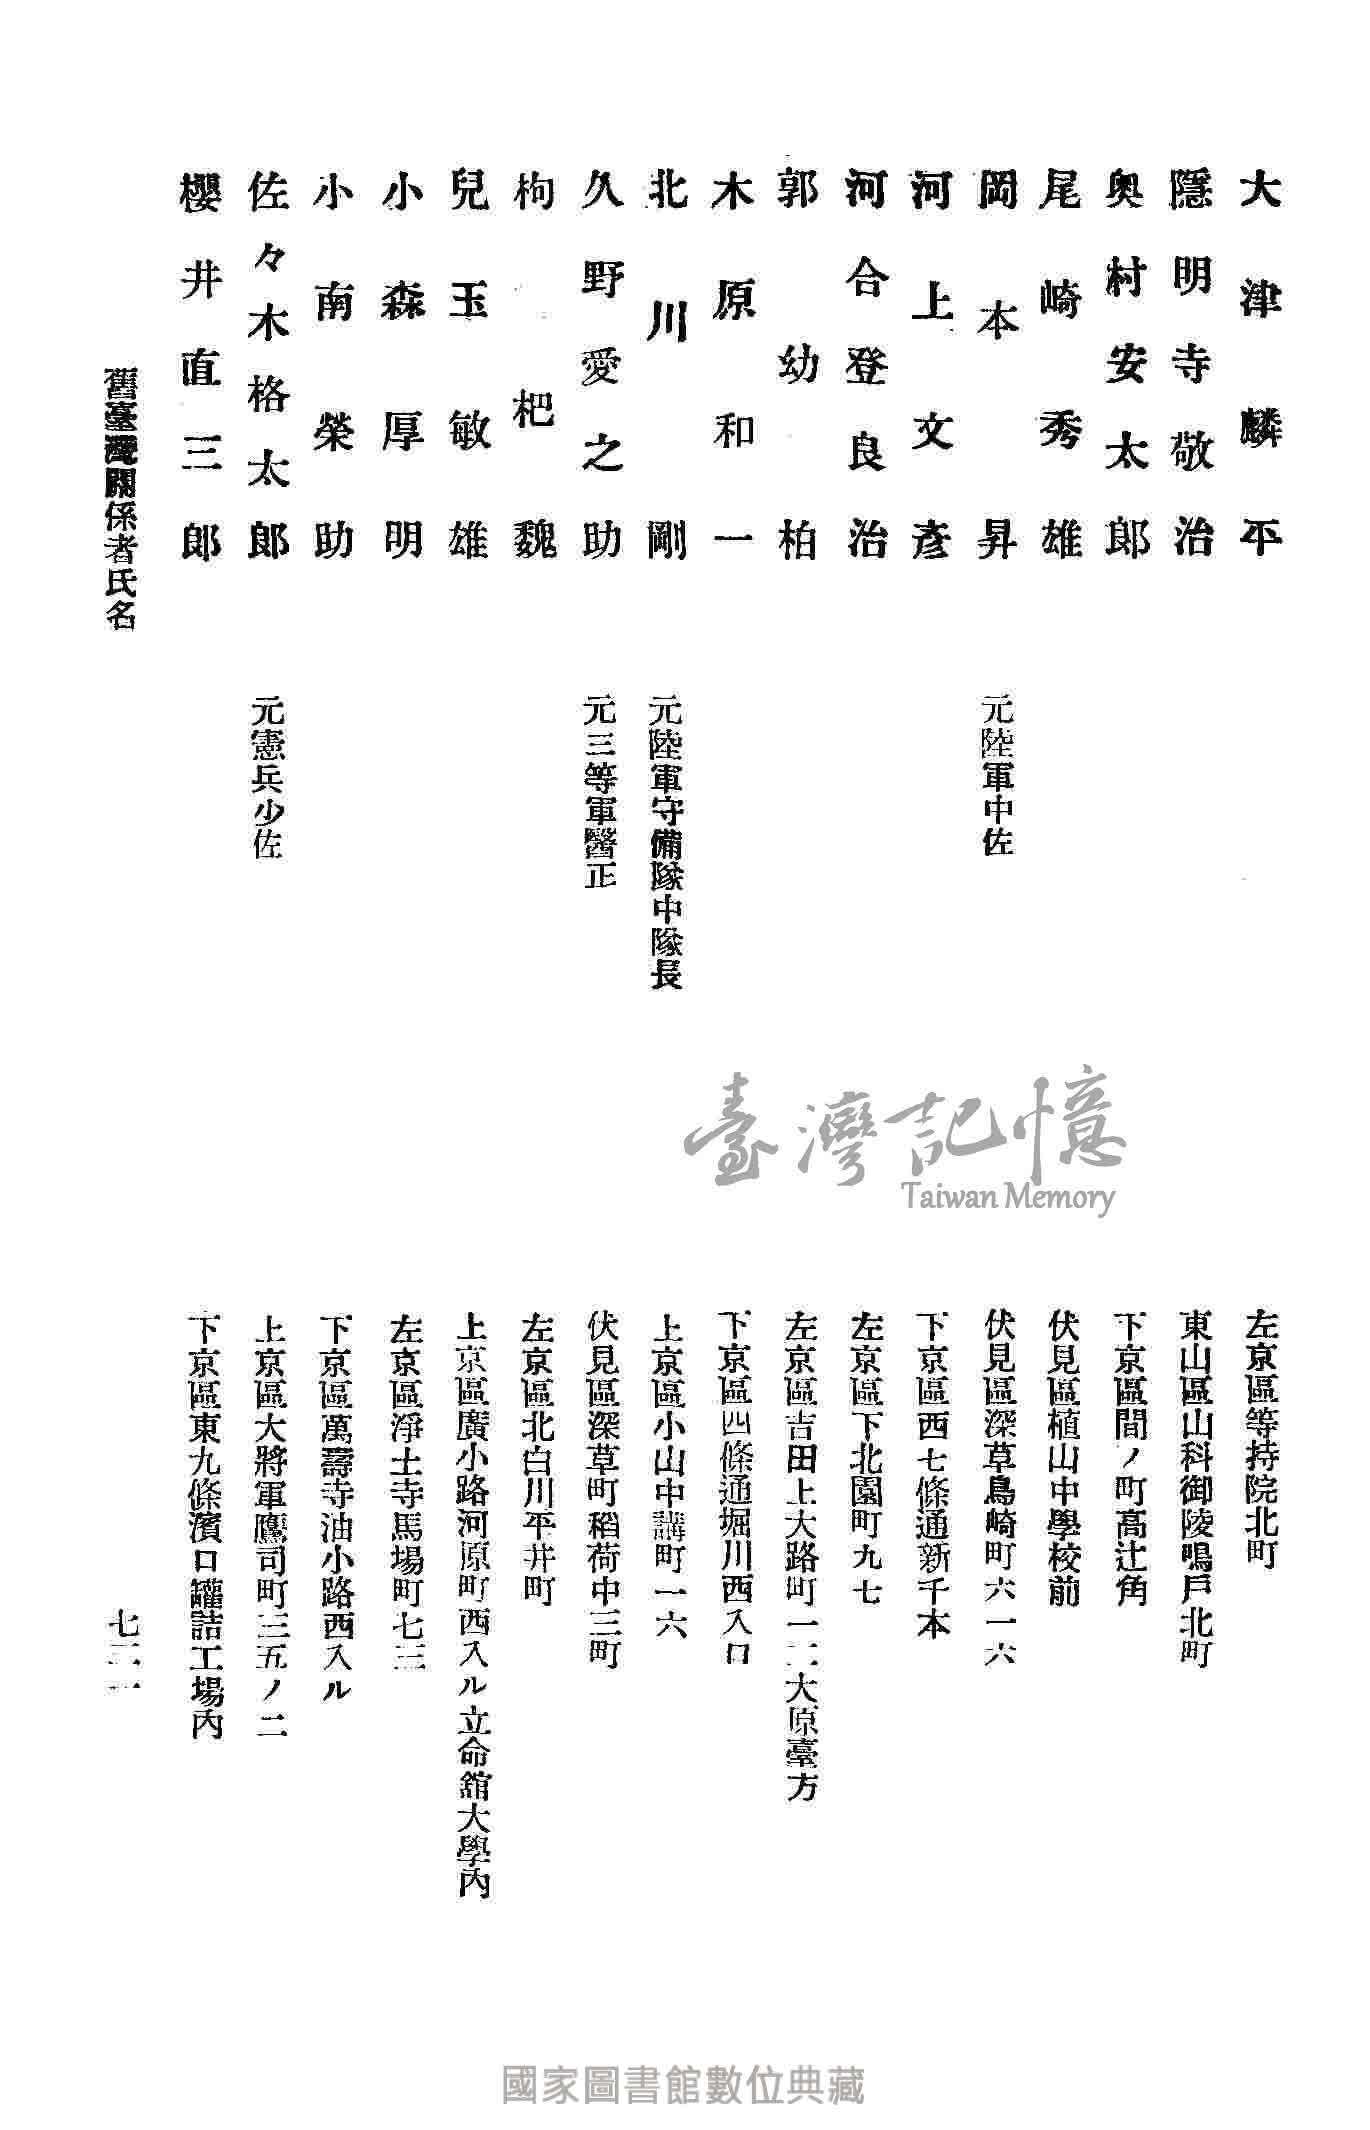 大津麟平　左京區等持院北町
隱明寺敬治　東山區山科御陵鳴戶北町
奥村安太郎　下京區間ノ町高辻角
尾崎秀雄　伏見區植山中學校前
岡本昇　元陸軍中佐　伏見區深草鳥崎町六一六
河上文彥　下京區西七條通新千本
河合登良治　左京區下北園町九七
郭幼柏　左京區吉田上大路町一二大原臺方
木原和一　下京區四條通堀川西入口
北川剛　元陸軍守備隊中隊長　上京區小山中講町一六
久野愛之助　元三等軍醫正　伏見區深草町稻荷中三町
枸杷魏　左京區北白川平井町
兒玉敏雄　上京區廣小路河原町西入ル立命舘大學內
小森厚明　左京區淨土寺馬場町七三
小南榮助　下京區萬壽寺油小路西入ル
佐々木格太郎　元憲兵少佐　上京區大將軍鷹司町三五ノ二
櫻井直三郎　下京區東九條濱口罐詰工場內
舊臺灣關係者氏名
臺灣記憶
Taiwan Memory
國家圖書館數位典藏